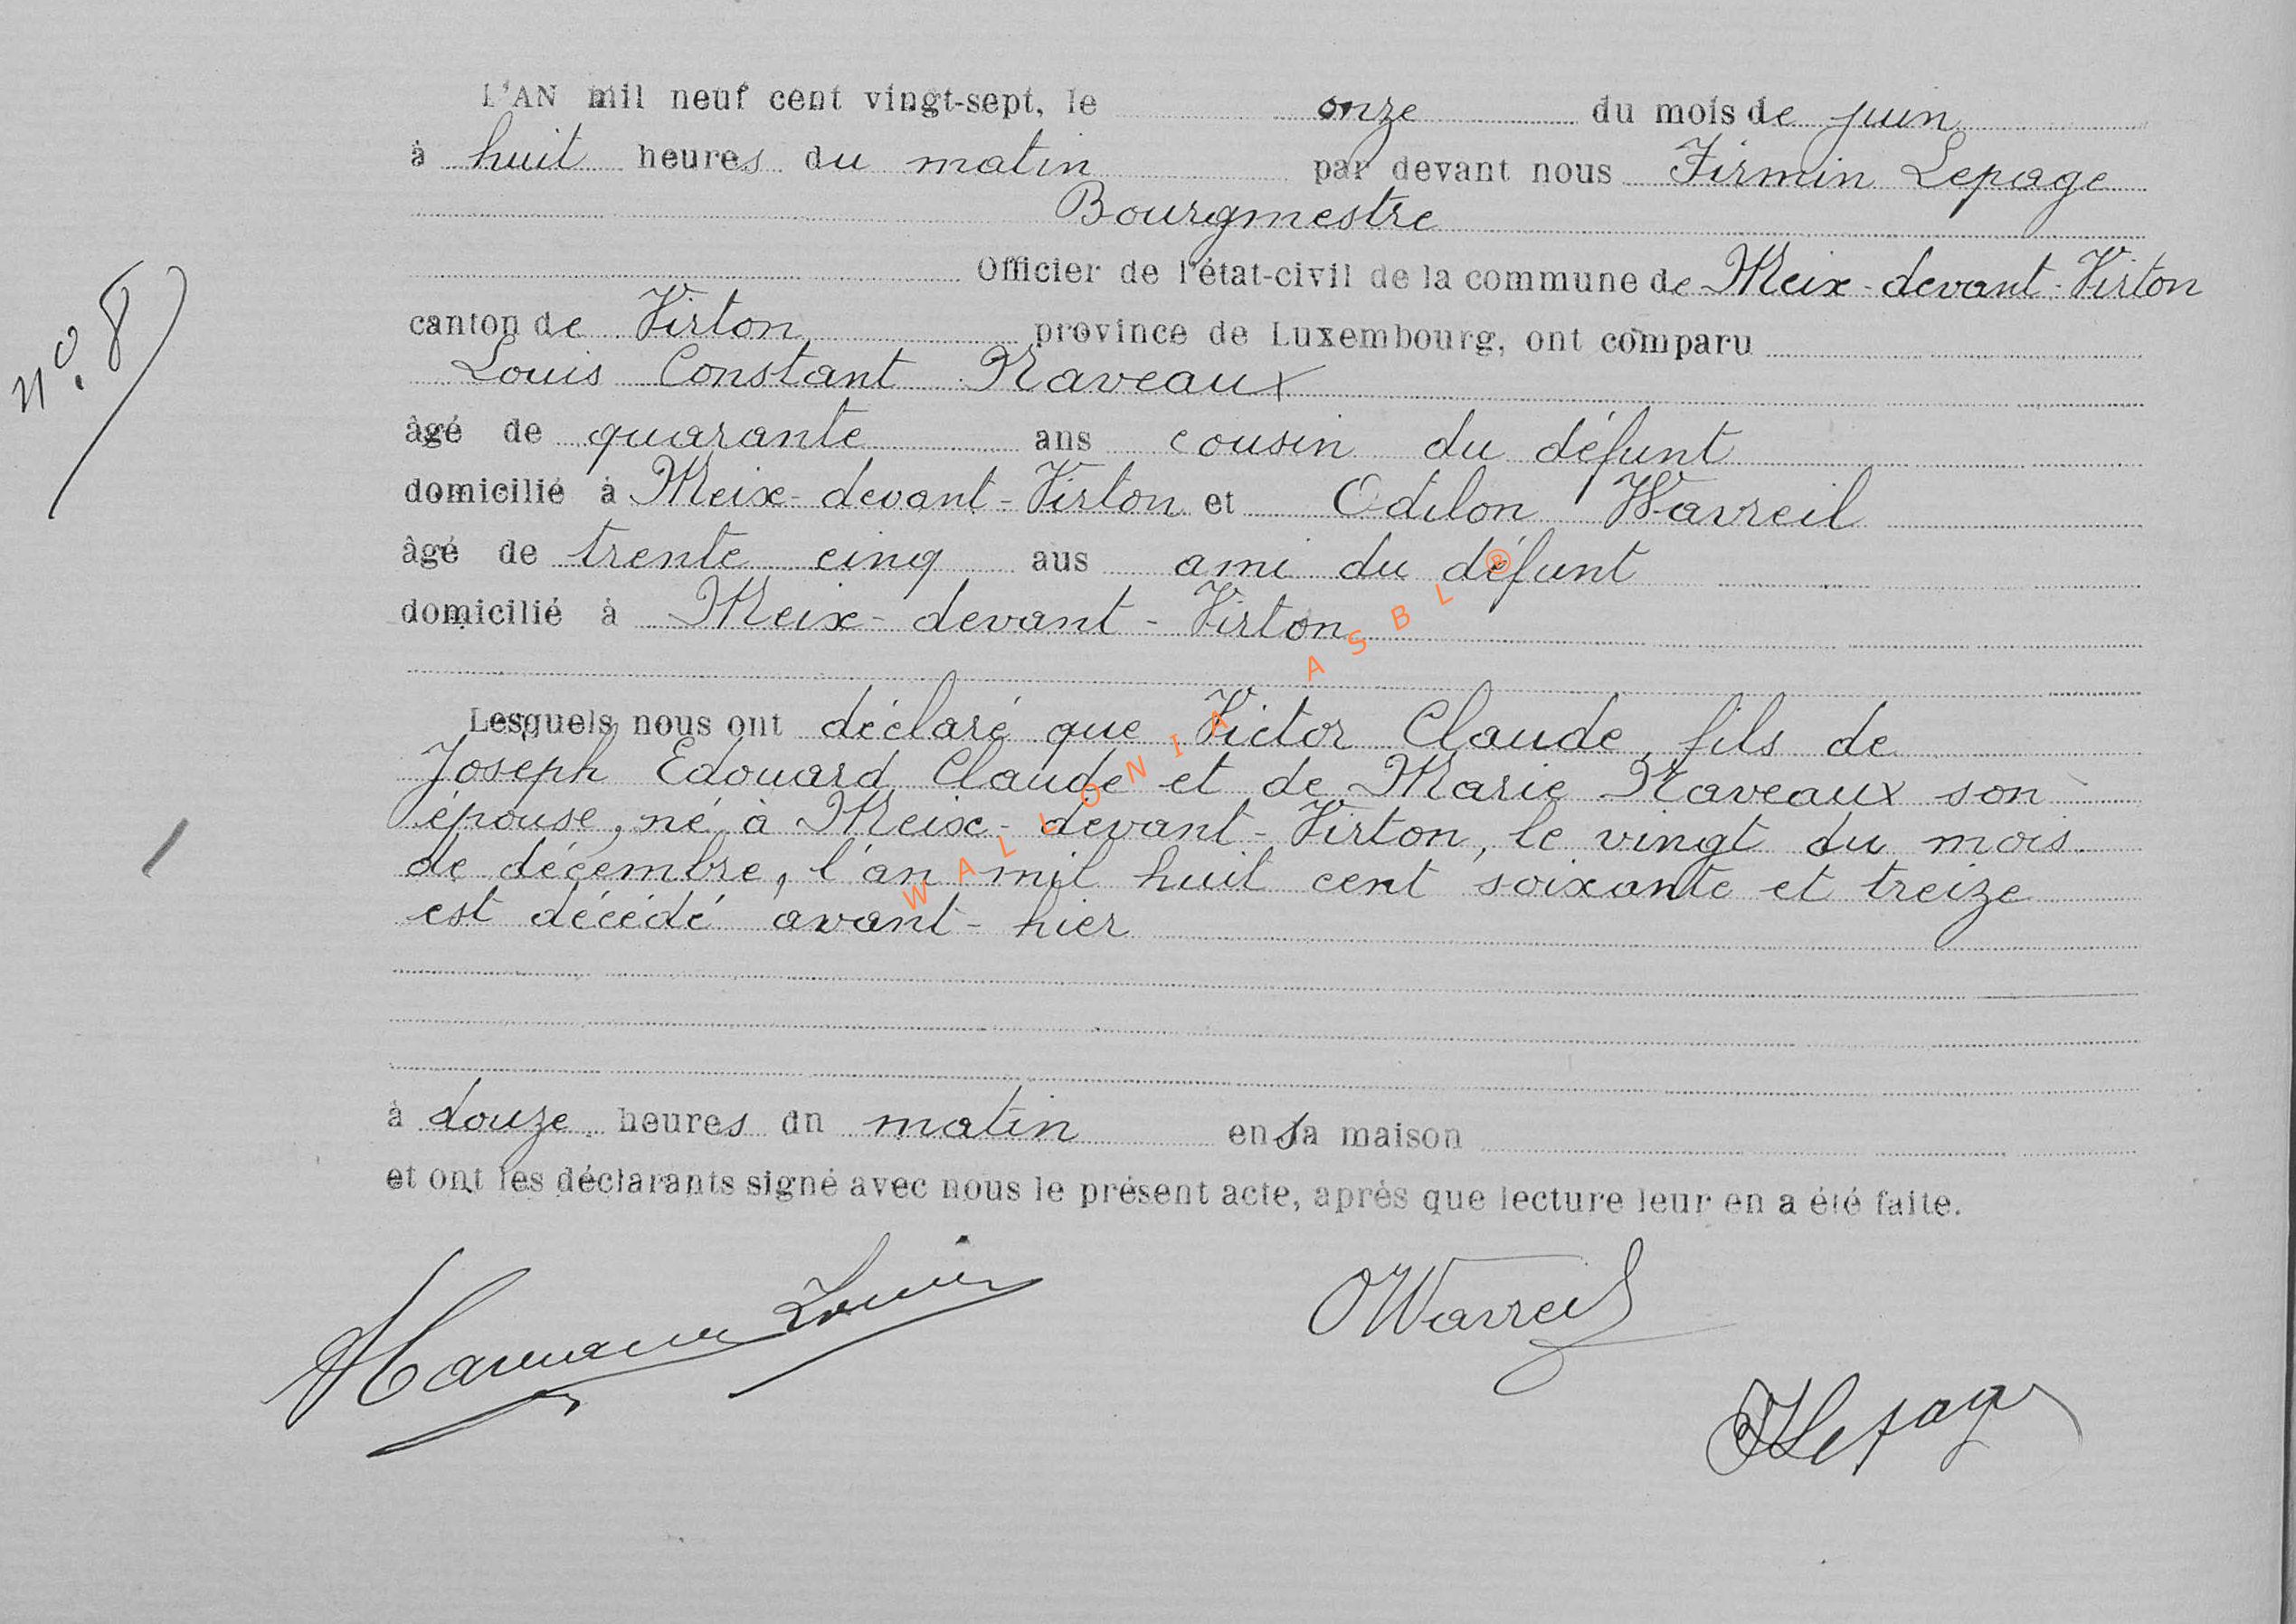 L'AN mil neuf cent vingt-sept, le onze du mois de juin
à huit heures du matin par devant nous Firmin Lepage
Bourgmestre
Officier de l'état-civil de la commune de Meix-devant-Virton
n° 8
canton de Virton province de Luxembourg, ont comparu
Louis Constant Raveaux
âgé de quarante ans cousin du défunt
domicilié à Meix-devant-Virton et Odilon Wavreil
âgé de trente cinq aus ami du défunt
domicilié à Meix-devant-Virton
Lesquels nous ont déclaré que Victor Claude, fils de
Joseph Edouard Claude et de Marie Raveaux son
épouse, né à Meix-devant-Virton, le vingt du mois
de décembre, l'an mil huit cent soixante et treize
est décédé avant-hier
à douze heures dn matin en sa maison
et ont les déclarants signé avec nous le présent acte, après que lecture leur en a été faite.
Louis
OWavreil
FLepage
WALLONIA ASBL ®